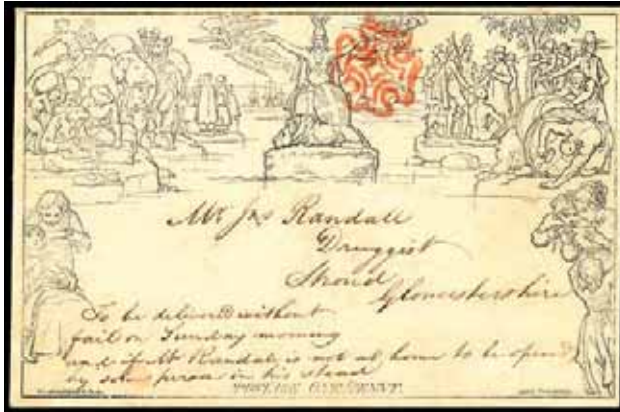 Mr Jas Randall
Druggist
Stroud
Gloucestershire
To be delivered without
fail on Sunday morning
and if Mr Randall is not at home to be opened
by some person in his stead
POSTAGE ONE PENNY.